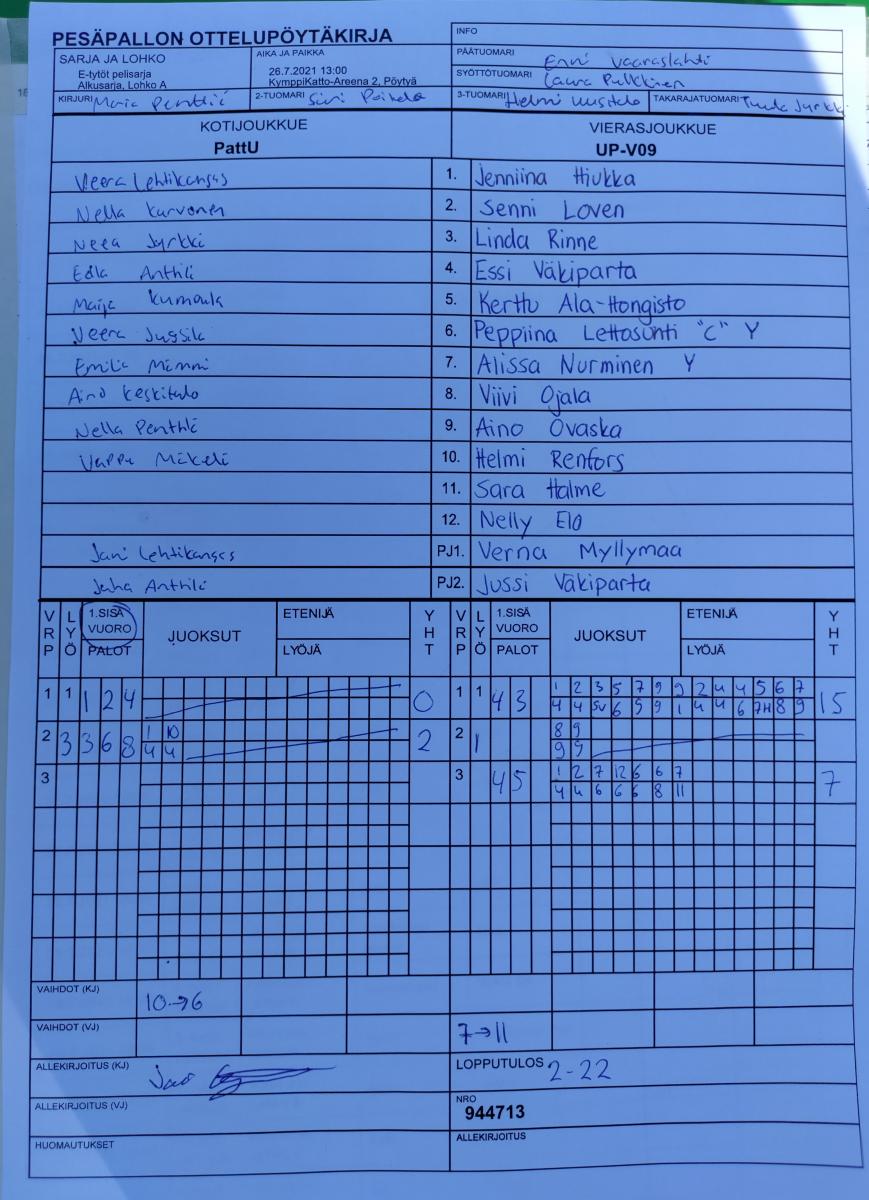 PESÄPALLON OTTELUPÖYTÄKIRJA
INFO
SARJA JA LOHKO
E-tytöt pelisarja
Alkusarja, Lohko A
AIKA JA PAIKKA
26.7.2021 13:00
KymppiKatto-Areena 2, Pöytyä
PÄÄTUOMARI Enni Vaaraslahti
SYÖTTÖTUOMARI Laura Pulkkinen
KIRJURI Maria Penttilä
2-TUOMARI Siri
3-TUOMARI Helmi Uusitalo
TAKARAJATUOMARI Tuula Jyrkk
KOTIJOUKKUE
PattU
VIERASJOUKKUE
UP-V09
Veera Lehtikangas 1. Jenniina Hiukka
Nella Karvonen 2. Senni Loven
Neea Jyrkki 3. Linda Rinne
Edla Anthli 4. Essi Väkiparta
Maija Kumaula 5. Kerttu Ala-Hongisto
Veera Jussila 6. Peppiina Lettosunti "C" Y
Emilia Mimmi 7. Alissa Nurminen Y
Aino Keskitalo 8. Viivi Ojala
Nella Penttilä 9. Aino Ovaska
Vappu Mäkelä 10. Helmi Renfors
11. Sara Halme
12. Nelly Elo
Jani Lehtikangas PJ1. Verna Myllymaa
Juha Anthli PJ2. Jussi Väkiparta
VRP LYÖ 1.SISÄ VUORO PALOT JUOKSUT ETENIJÄ LYÖJÄ YHT VRP LYÖ 1.SISÄ VUORO PALOT JUOKSUT ETENIJÄ LYÖJÄ YHT
1 1 1 2 4 0 1 1 4 3 1 2 3 5 7 9 9 2 4 4 5 6 7 15
4 4 SV 6 9 9 1 4 4 6 7H 8 9
2 3 3 6 8 1 10 2 2 1 8 9
4 4 9 9
3 3 4 5 1 2 7 12 6 6 7 7
4 4 6 6 6 8 11
VAIHDOT (KJ) 10→6
VAIHDOT (VJ) 7→11
ALLEKIRJOITUS (KJ)
LOPPUTULOS 2-22
ALLEKIRJOITUS (VJ)
NRO
944713
HUOMAUTUKSET
ALLEKIRJOITUS